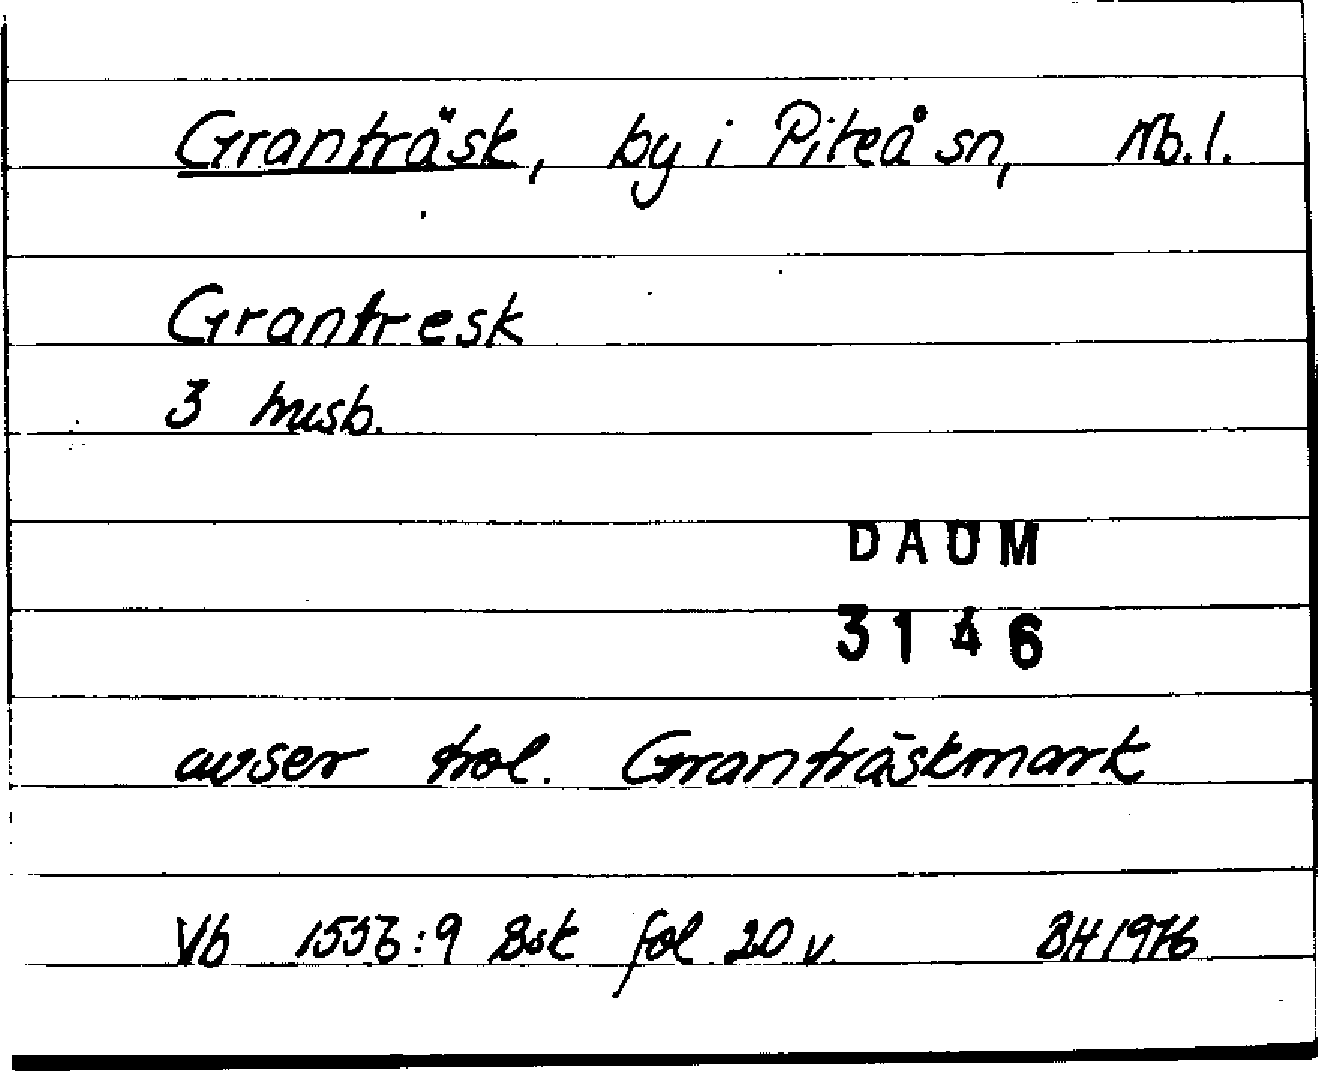 Granträsk, by i Piteå sn, Nb.l.
Grantresk
3 husb.
DAUM
3146
avser trol. Granträskmark
Vb 1556:9 Bsk fol 20 v. BH 1976